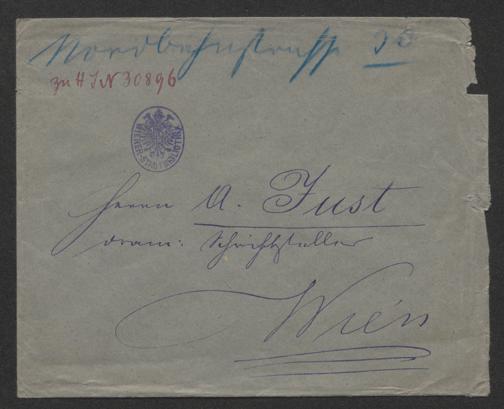 Nordbahnstrasse 30
zu H I N 30896
WIENER STADTBIBLIOTHEK
Herrn A. Just
dram: Schriftsteller
Wien